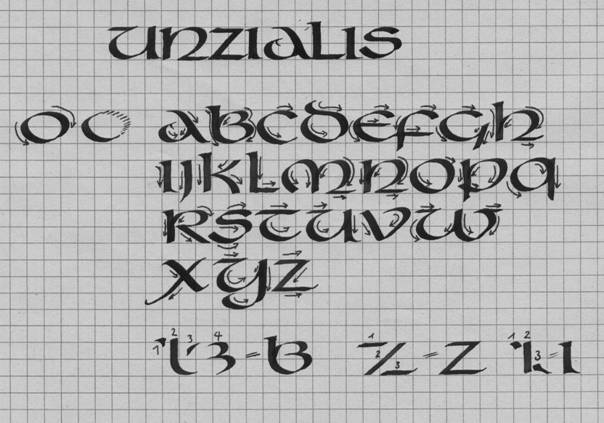 UNZIALIS
O C ABCDEFGH
IJKLMNOPQ
RSTUVW
XYZ
1 2 3 4 = B 1 2 3 = Z 1 2 3 = I